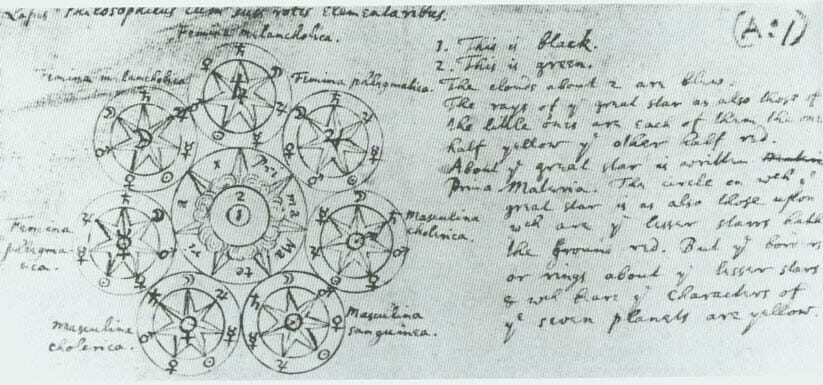 Lapis Philosophicus cum suis rotis elementaribus.
(A:1)
Femina melancholica.
Femina melancholica
Femina phlegmatica.
Femina
phlegma-
tica.
Masculina
cholerica.
masculina
cholerica.
Masculina
sanguinea.
pri ma Ma te ri a
2
1
1. This is black.
2. This is green.
The clouds about 2 are blew.
The rays of yᵉ great star as also those of
the little ones are each of them the one
half yellow yᵉ other half red.
About yᵉ great star is written
Prima Materia. The circle on wᶜʰ yᵉ
great star is as also those upon
wᶜʰ are yᵉ lesser starrs hath
the ground red. But yᵉ borders
or rings about yᵉ lesser stars
& wᶜʰ beare yᵉ characters of
yᵉ seven planets are yellow.